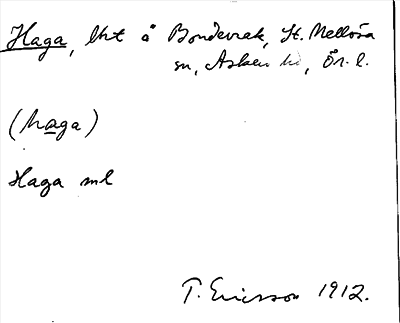 Haga, lht å Bondevrak, St. Mellösa
sn, Askers hd, Ör. l.
(haga)
Haga sml
T. Ericsson 1912.